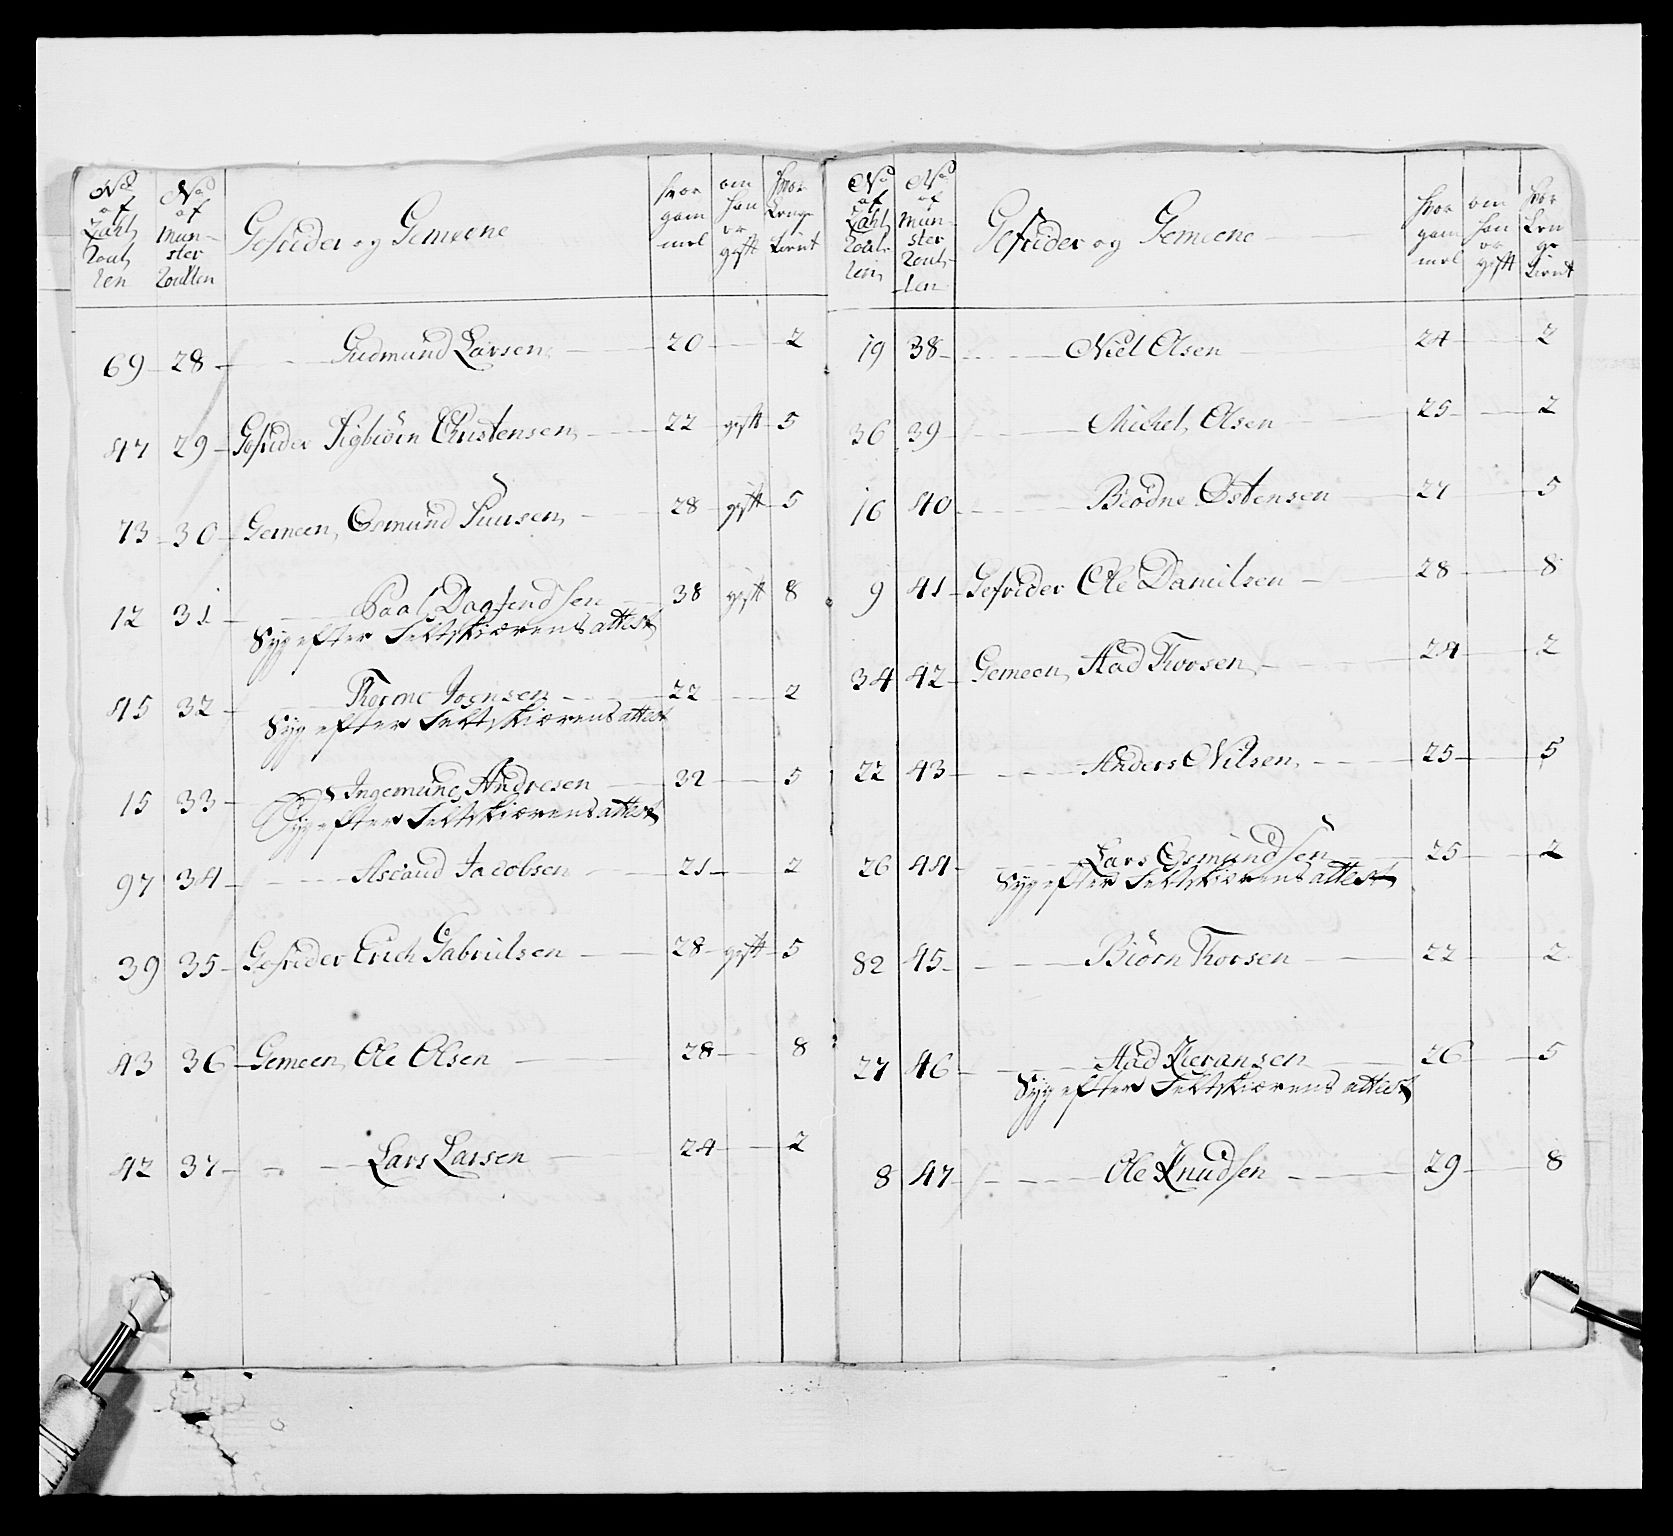 No af Zahl Roul len | No af Mün- ster Roullen | Gefrider og Gemeene | hvor gam mel | om han er gift | hvor Lenge tient
69 28 Gudmund Larsen 20 2
47 29 Gefrider Sigbiörn Christensen 22 gift 5
73 30 Gemeen Osmund Siursen 28 gift 5
12 31 Paal Dagfendsen 38 gift 8
Syg efter Feltskiærens attest
45 32 Thorme Joensen 22 2
Syg efter Feltskiærens attest
15 33 Ingemund Andresen 32 5
Syg efter Feltskiærens attest
97 34 Ascaud Jacobsen 21 2
39 35 Gefrider Erich Gabrielsen 28 gift 5
43 36 Gemeen Ole Olsen 28 8
42 37 Lars Larsen 24 2
No af Zahl Roul len | No af Mün- ster Roul- len | Gefrider og Gemeene | hvor gam mel | om han er gift | hvor Len ge tient
19 38 Niel Olsen 24 2
36 39 Michel Olsen 25 2
16 40 Biödne Östensen 27 5
9 41 Gefrider Ole Danielsen 28 8
34 42 Gemeen Aad Thorsen 24 2
22 43 Anders Nilsen 25 5
26 44 Lars Osmundsen 25 2
Syg efter Feltskiærens attest
82 45 Biörn Thorsen 22 2
27 46 Aad Zieransen 26 5
Syg efter Feltskiærens attest
8 47 Ole Knudsen 29 8